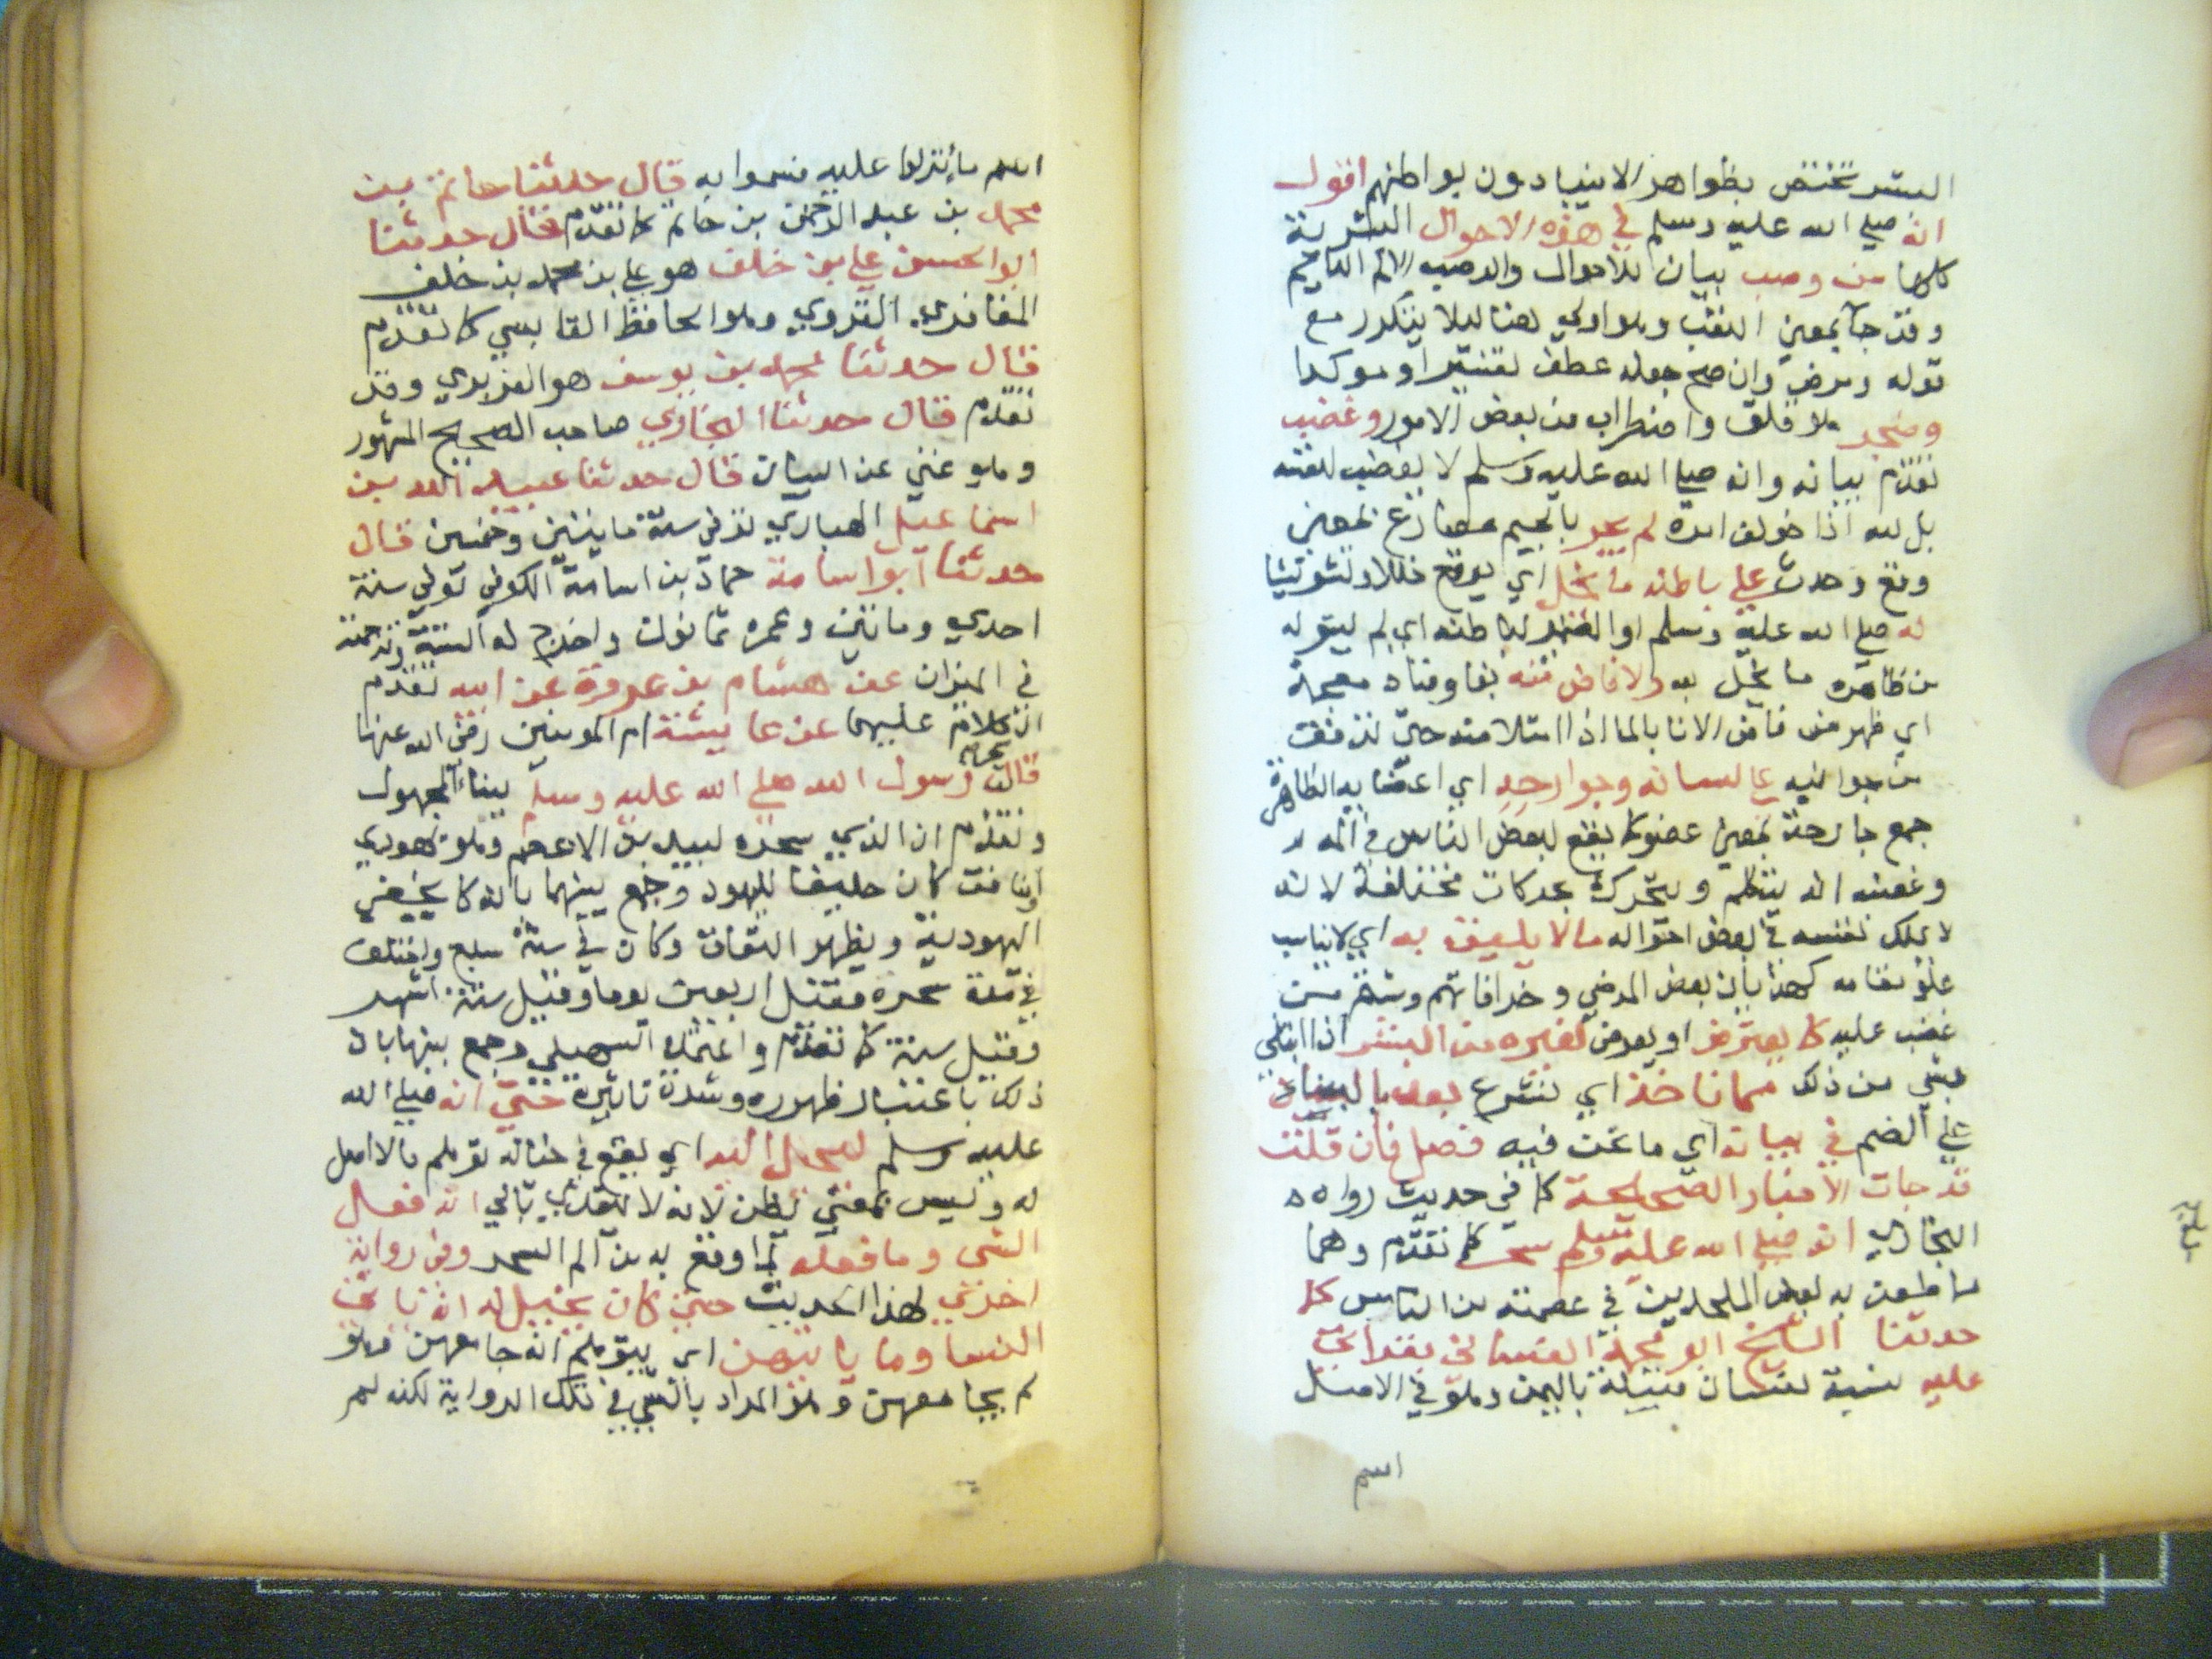 البشر تختص بظواهر الانبياء دون بواطنهم اقول
انه صلي الله عليه وسلم في هذه الاحوال البشرية
كلها من وصب بيان للاحوال والوصب الالم الدايم
وقد جآ بمعني التعب وهو اولي هنا ليلا يتكرر مع
قوله ومرض وان صح جعله عطف تفسير او موكدا
وضجر ملا قلق واضطراب من بعض الامور وغضب
تقدم بيانه وانه صلي الله عليه وسلم لا يغضب لنفسه
بل لله اذا خولف امره لم يجر بالجيم مضارع بمعني
وقع وحدث علي باطنه ما يخل اي يوقع خللا وتشويشا
له صلي الله عليه وسلم او الضمير لباطنه اي لم
من ظاهره ما يخل به ولا فاض منه بفا وضاد معجمة
اي ظهر من فاض الانا بالما اذا امتلا منه حتي تدفقت
من جوانبه علي لسانه وجوارحه اي اعضايه الظاهرة
جمع جارحة بمعني عضو كما يقع لبعض الناس في المه
وغضبه انه يتكلم ويتحرك بحركات مختلفة لانه
لا يملك نفسه في بعض احواله ما لا يليق به اي لا يناسب
علو مقامه كهذيان بعض المرضي وخرافاتهم وشتم من
غضب عليه كما يعترض او يعرض لغيره من البشر اذا ابتلي
بشي من ذلك مما ناخذ اي نشرع بعد بالبناء
علي الضم في بيانه اي ما نحن فيه فصل فان قلت
قد جات الاخبار الصحيحة كما في حديث رواه
البخاري انه صلي الله عليه وسلم سحر كما تقدم وهما
ما طعن به بعض الملحدين في عصمته من الناس كما
حدثنا الشيخ ابو محمد العتابي بقرآتي
عليه نسبة لعتاب قبيلة باليمن وهو في الاصل
اسم
اسم ما نزلوا عليه فسموا به قال حدثنا حاتم بن
محمد بن عبد الرحمن بن حاتم كما تقدم قال حدثنا
ابو الحسن علي بن خلف هو علي بن محمد بن خلف
المغافري القروي وهو الحافظ القابسي كما تقدم
قال حدثنا محمد بن يوسف هو الفربري وقد
تقدم قال حدثنا البخاري صاحب الصحيح المشهور
وهو غني عن البيان قال حدثنا عبيد الله بن
اسماعيل الهباري توفي سنة مايتين وخمسين قال
حدثنا ابو اسامة حماد بن اسامة الكوفي توفي سنة
احدي ومايتين وعمره ثمانون واخرج له الستة وترجمته
في الميزان عن هشام بن عروة عن ابيه تقدم
الكلام عليهما عن عايشة ام المومنين رضي الله عنها
قالت سحر رسول الله صلي الله عليه وسلم ببناء المجهول
وتقدم ان الذي سحره لبيد بن الاعصم وهو يهودي
او منافق كان حليفا لليهود وجمع بينهما بانه كان يخفي
اليهودية ويظهر النفاق وكان في سنة سبع واختلف
في مدة سحره فقيل اربعين يوما وقيل ستة اشهر
وقيل سنة كما تقدم واعتمده السهيلي وجمع بينها بان
ذلك باعتبار ظهوره وشدة تاثيره حتي انه صلي الله
عليه وسلم ليخيل اليه اي يقع في خياله توهم ما لا اصل
له وليس بمعني يظن لانه لا يتعدي بالي انه فعل
الشي وما فعله لما وقع به من الم السحر وفي رواية
اخري لهذا الحديث حتي كان يخيل له انه ياتي
النسا وما ياتيهن اي يتوهم انه جامعهن وهو
لم يجامعهن وهو المراد بالشي في تلك الرواية لكنه لم